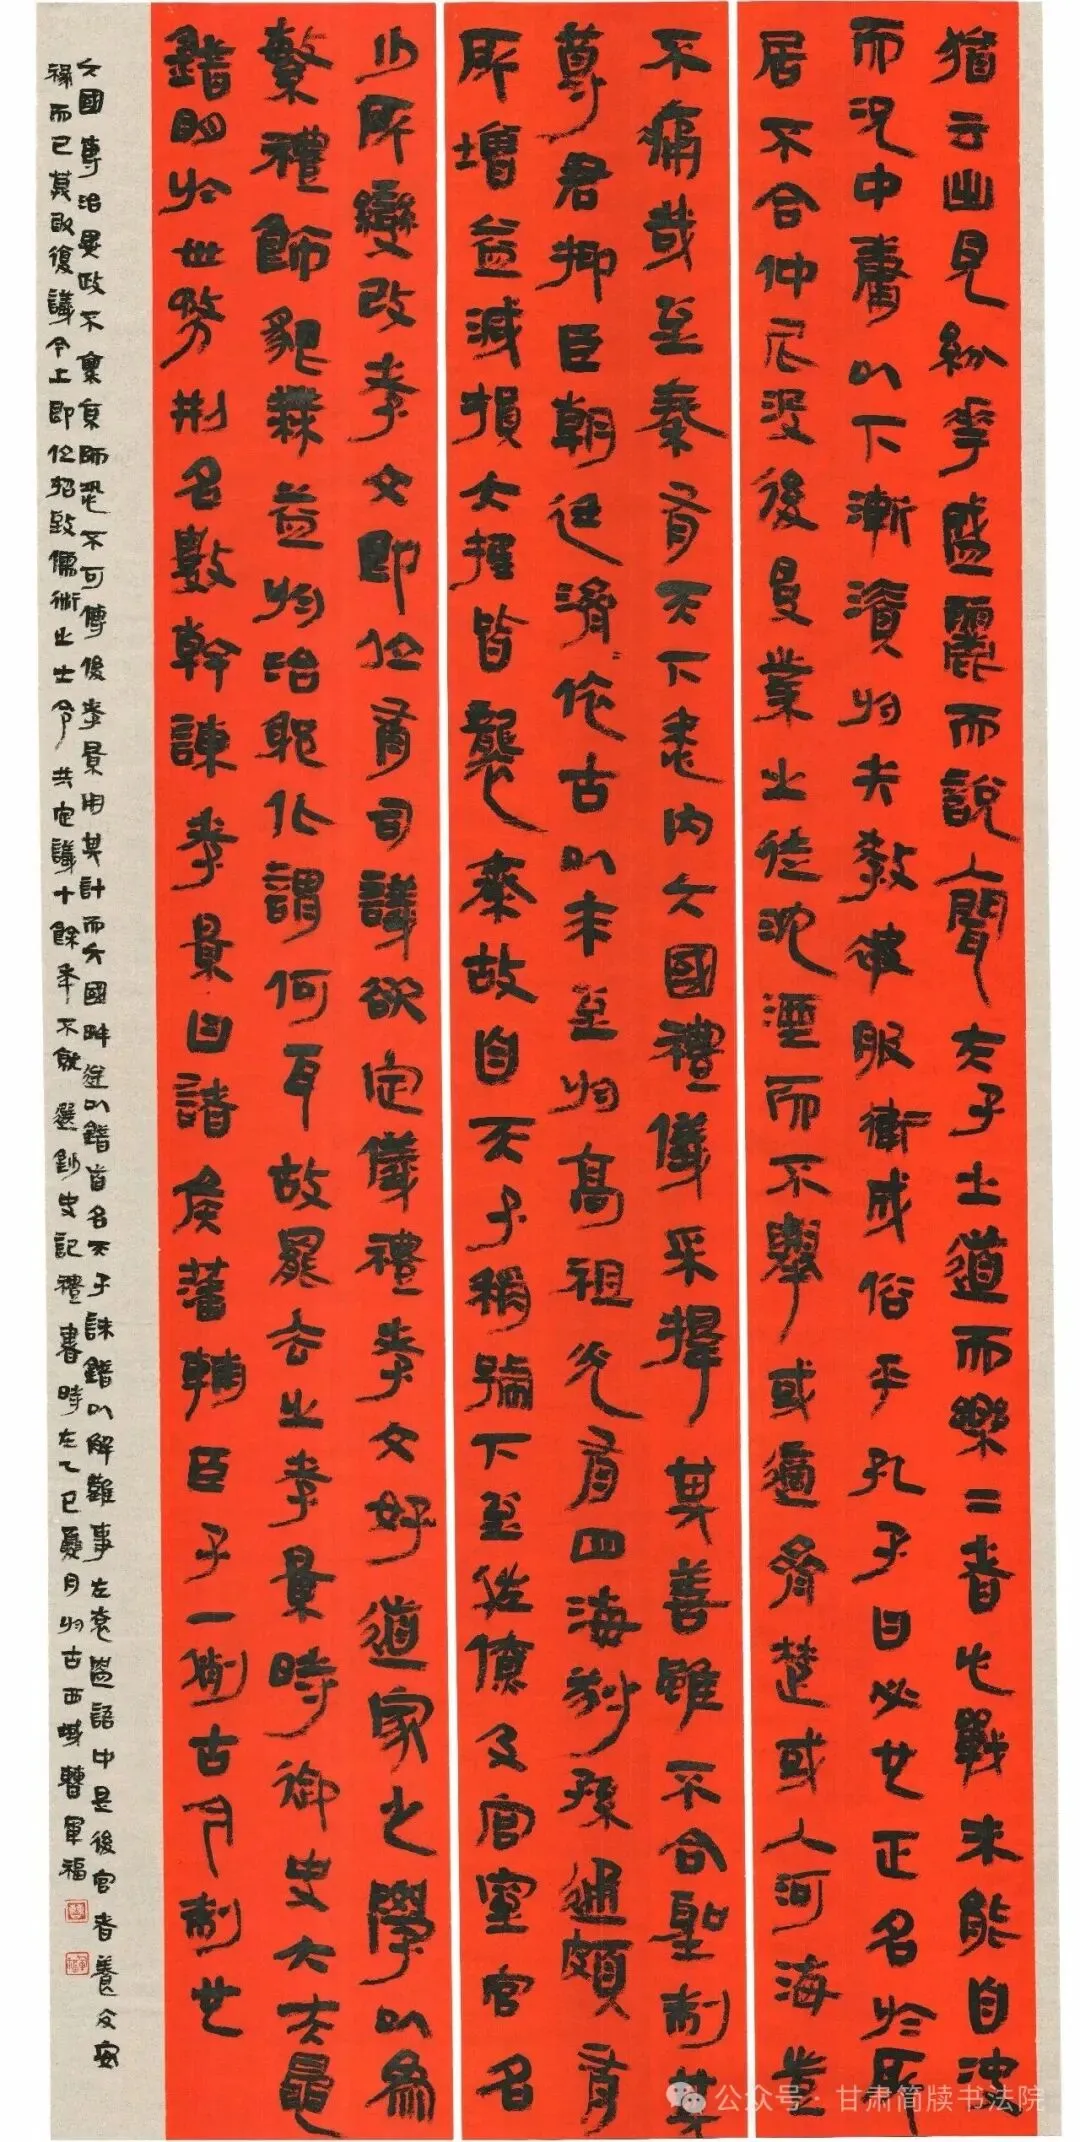 猶云出見紛華盛麗而說入聞夫子之道而樂二者心戰未能自決
而況中庸以下漸漬於失教被服衛成俗乎孔子曰必也正名於所
居不合仲尼沒後受業之徒沈湮而不舉或適齊楚或入河海豈
不痛哉至秦有天下悉內六國禮儀采擇其善雖不合聖制其
尊君抑臣朝廷濟依古以來至於高祖光有四海叔孫通頗有
所增益減損大抵皆襲秦故自天子稱號下至佐僚及宮室官名
少所變改孝文即位有司議欲定儀禮孝文好道家之學以為
繁禮飾貌無益於治躬化謂何耳故罷去之孝景時御史大夫鼂
錯明於世務刑名數幹諫孝景曰諸侯藩輔臣子一例古今制也
大國專治異政不稟京師恐不可傳後孝景用其計而六國畔逆以錯首名天子誅錯以解難事在袁盎語中是後官者養交安
祿而已莫敢復議今上即位招致儒術之士令共定議十餘年不就 選鈔史記禮書時在乙巳夏月於古西域曹軍福
公众号·甘肃简牍书法院